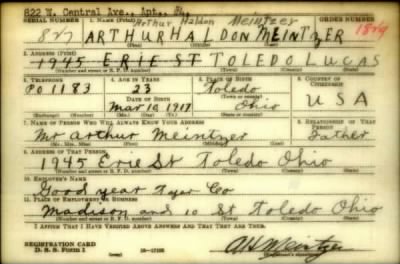 822 W. Central Ave., Apt., 8L,
SERIAL NUMBER 1. NAME (Print) Arthur Haldon Meintzer 1849
847 ARTHUR HALDON MEINTZER
(First) (Middle) (Last)
2. ADDRESS (Print)
1945 ERIE ST TOLEDO LUCAS
(Number and street or R. F. D. number) (Town) (County) (State)
3. TELEPHONE 4. AGE IN YEARS 5. PLACE OF BIRTH 6. COUNTRY OF CITIZENSHIP
PO 1183 23 Toledo
DATE OF BIRTH (Town or county) U S A
Mar 10, 1917 Ohio
(Exchange) (Number) (Mo.) (Day) (Yr.) (State or country)
7. NAME OF PERSON WHO WILL ALWAYS KNOW YOUR ADDRESS 8. RELATIONSHIP OF THAT PERSON
Mr Arthur Meintzer Father
(Mr., Mrs., Miss) (First) (Middle) (Last)
9. ADDRESS OF THAT PERSON
1945 Erie St Toledo Ohio
(Number and street or R. F. D. number) (Town) (County) (State)
10. EMPLOYER'S NAME
Good year Co
11. PLACE OF EMPLOYMENT OR BUSINESS
Madison and 10 St Toledo Ohio
(Number and street or R. F. D. number) (Town) (County) (State)
I AFFIRM THAT I HAVE VERIFIED ABOVE ANSWERS AND THAT THEY ARE TRUE.
REGISTRATION CARD
D. S. S. Form 1 AH Meintzer
(Registrant's signature)